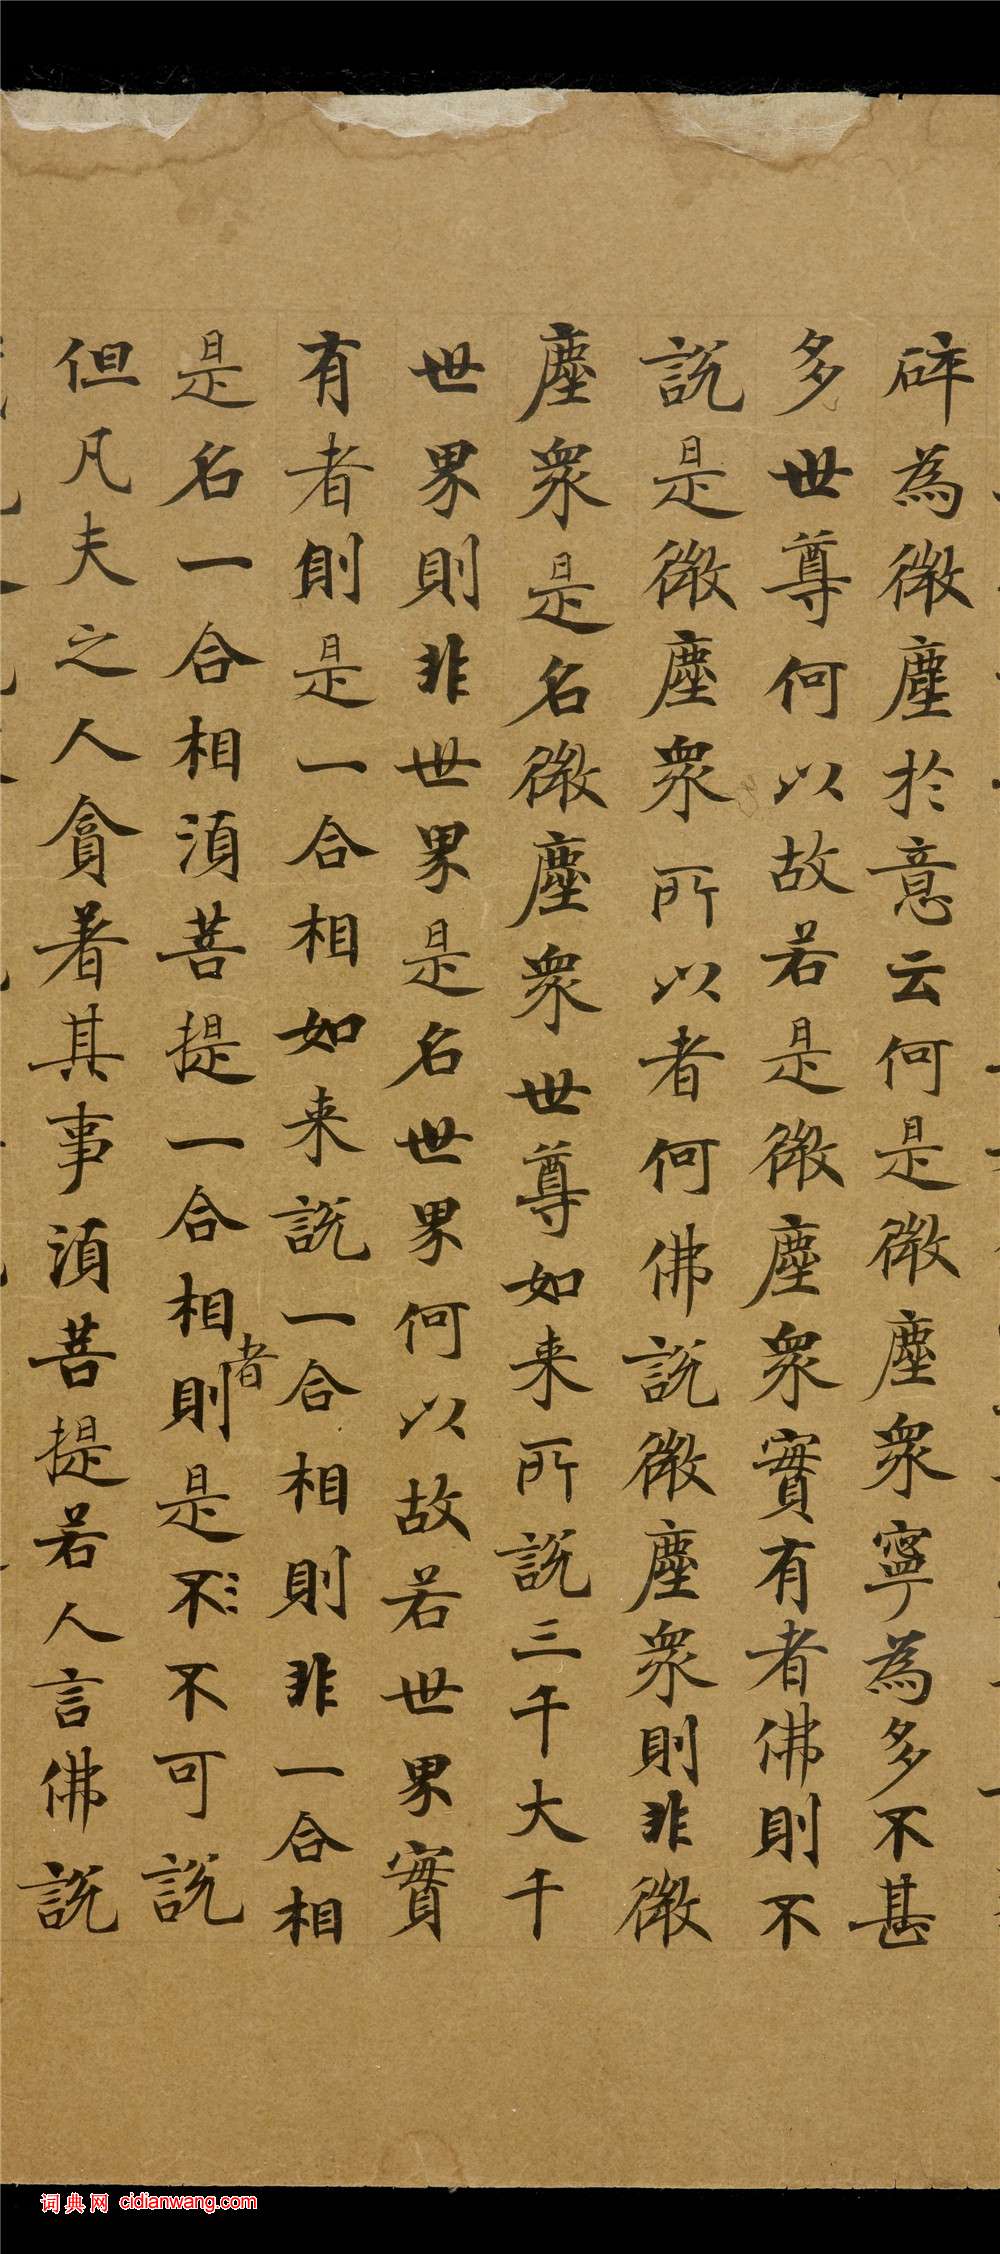 碎為微塵於意云何是微塵眾寧為多不甚
多世尊何以故若是微塵眾實有者佛則不
說是微塵眾所以者何佛說微塵眾則非微
塵眾是名微塵眾世尊如来所說三千大千
世界則非世界是名世界何以故若世界實
有者則是一合相如来說一合相則非一合相
是名一合相須菩提一合相者則是不不可說
但凡夫之人貪著其事須菩提若人言佛說
词典网 cidianwang.com